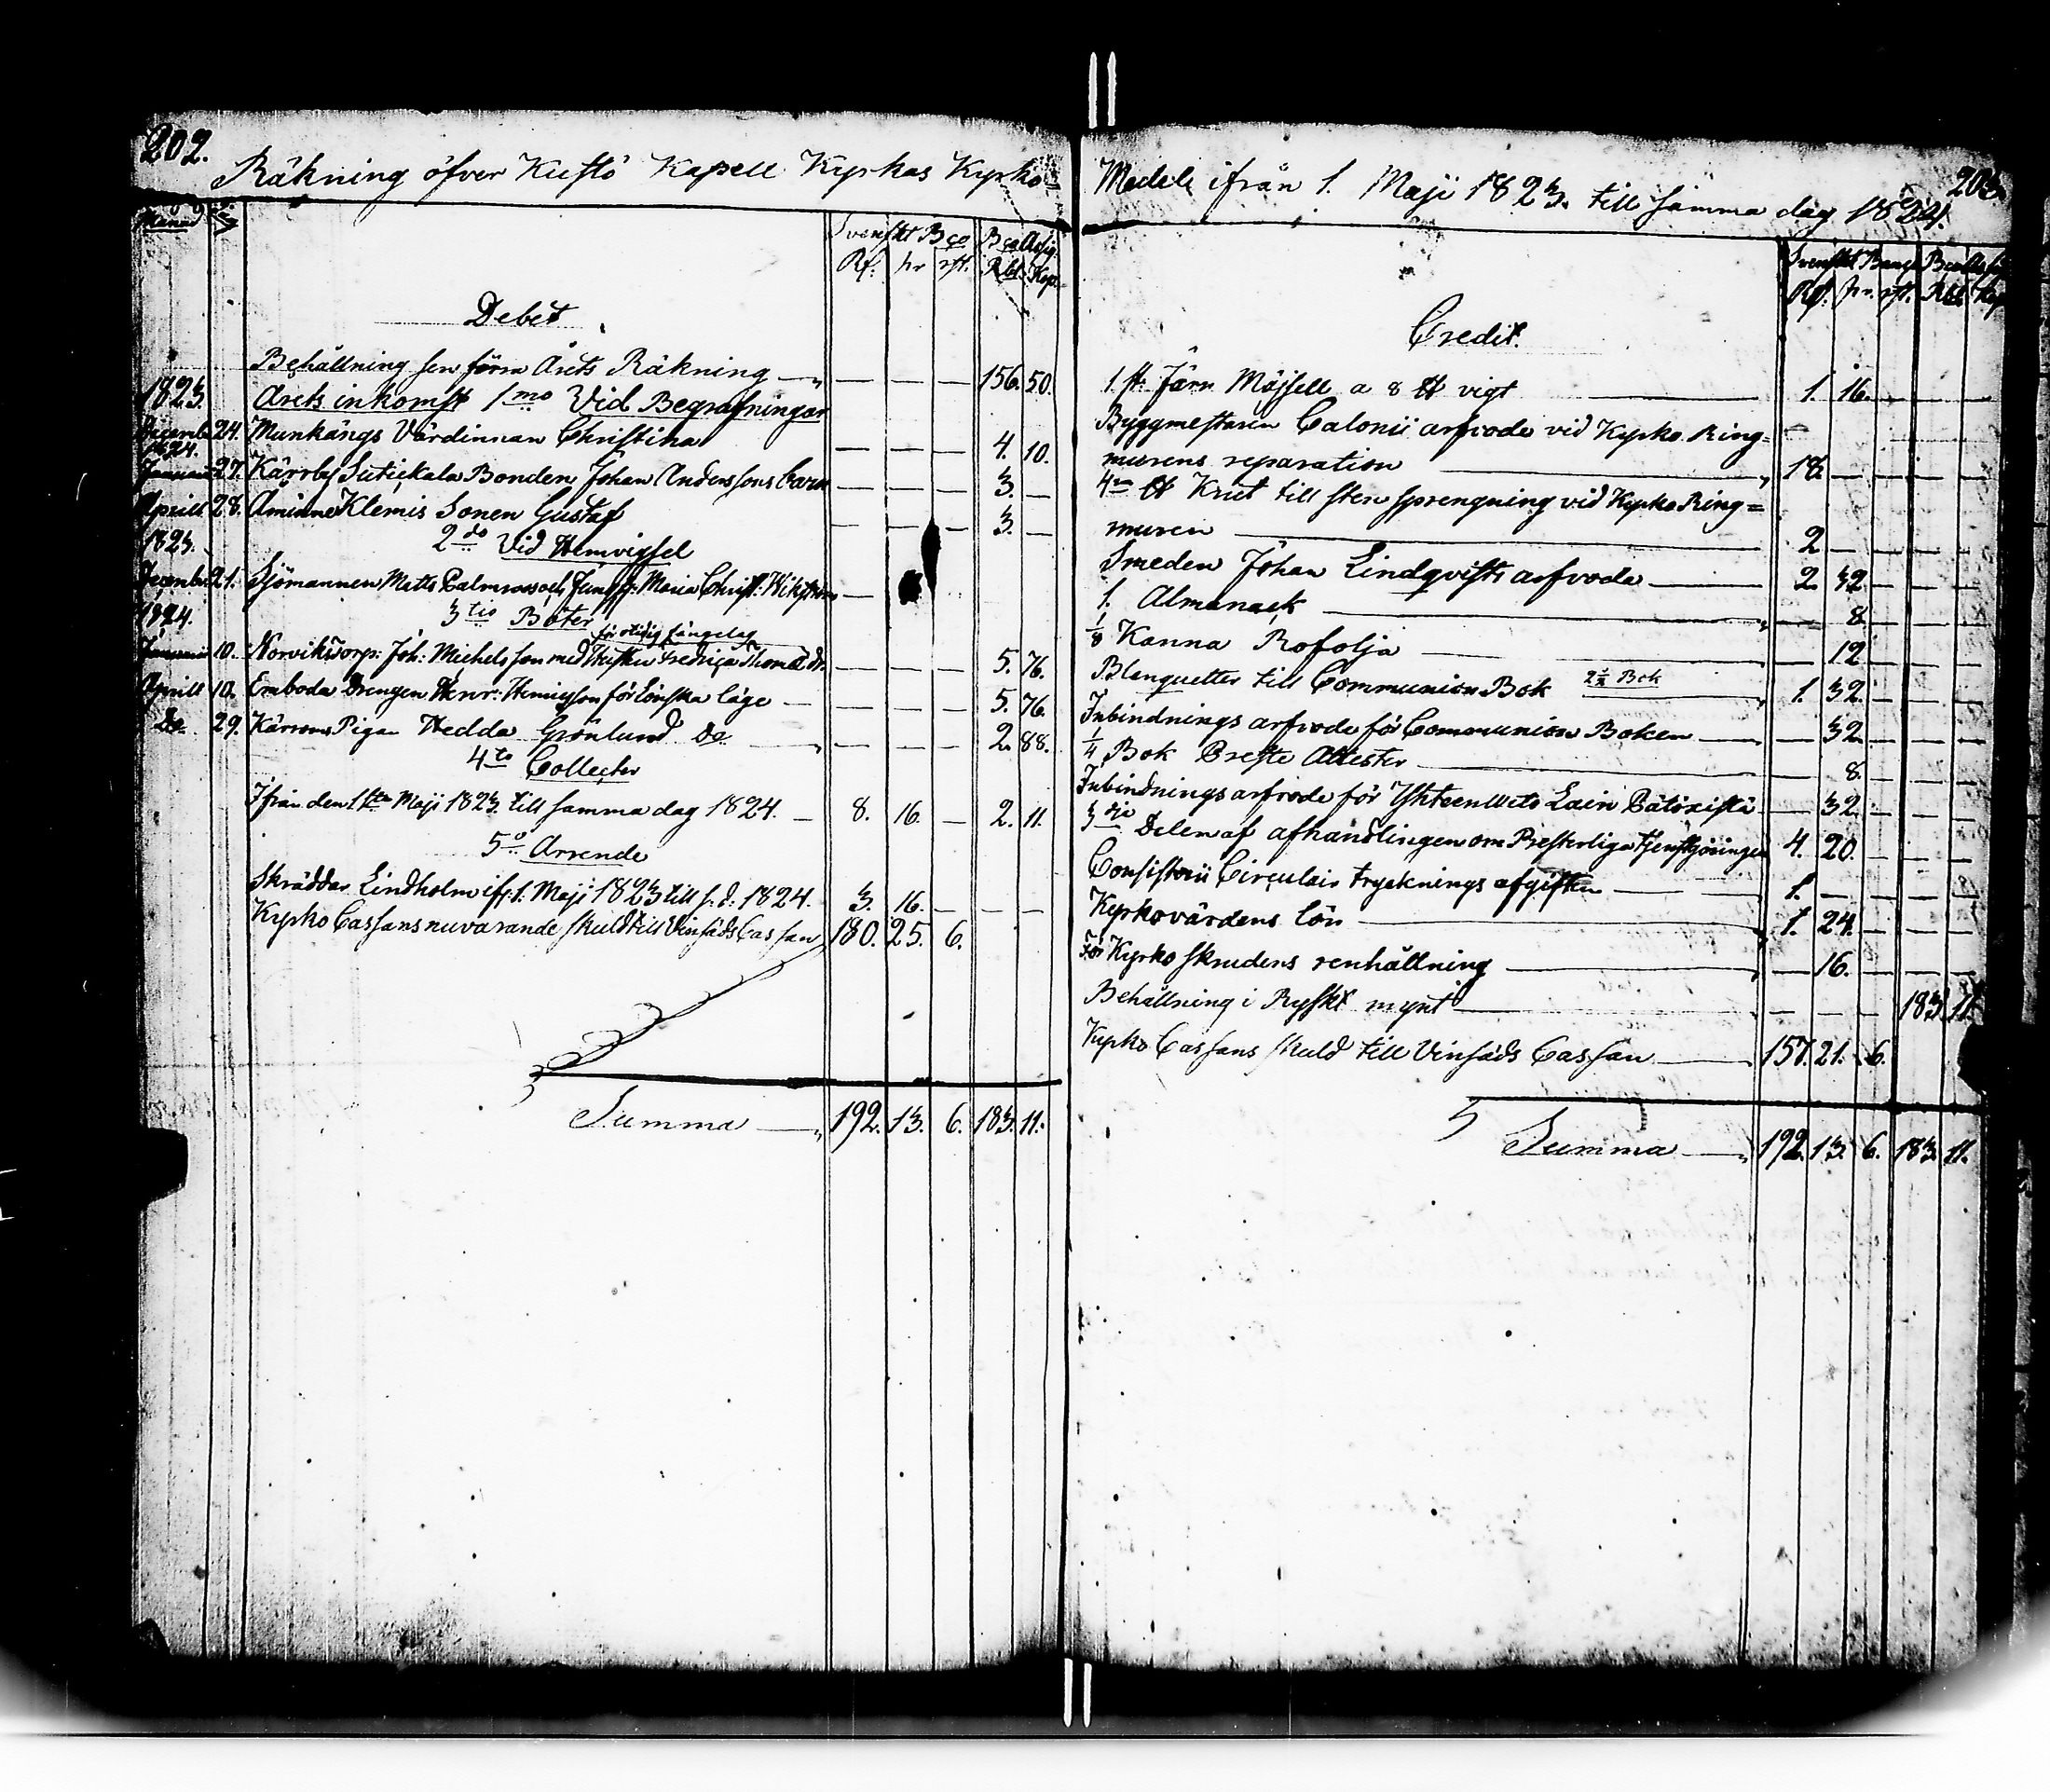 202.
Räkning öfver Kustö Kapell Kyrkas Kyrko=
Månad Dag
Svenskt Bco Bco Assig.
Rd. sk. rst. Rbl. Kop.
Debet
Behållning sen förra Årets Räkning — 156. 50.
1823. Årets inkomst 1mo Vid Begrafningar
Decemb. 24. Munkängs Värdinnan Christina — — — 4. 10.
1824.
Januarii 27. Kärrby Sutickala Bonden Johan Anderssons barn — — — 3. —
Aprill 28. Åminne Klemis Sonen Gustaf — — — 3. —
1823. 2do Vid Hemvigsel
Decemb. 21. Sjömannen Matts Palmroos och Jungf: Maria Christ: Wikström —
1824. 3tio Böter
för otidig sängelag
Januarii 10. Norviks Torp: Joh: Michelsson med Hustru Fredrica Thomæ dr. — — — 5. 76.
Aprill 10. Emboda Drengen Henr: Henricsson för Lönska läge — — — — 5. 76.
Do 29. Kärrom Pigan Hedda Grönlund Do — — — 2. 88.
4to Collecter
Ifrån den 1sta Maji 1823. till samma dag 1824. — 8. 16. — 2. 11.
5o Arrende
Skräddar Lindholm ifr: 1. Maji 1823 till s. d. 1824. 3. 16. — — —
Kyrko Cassans nuvarande skuld till Vinsäds Cassan 180. 25. 6.
Summa — 192. 13. 6. 183. 11.
203.
Medel ifrån 1. Maji 1823. till samma dag 1824.
Svenskt Banco Bco Assig
Rd. sk. rst. Rbl Kop
Credit.
1. st: Järn Måjsell a 8 ℔ vigt — 1. 16. — — —
Byggmestaren Calonii arfvode vid Kyrko Ring=
murens reparation — 18. — — — —
4 ℔ Krut till sten sprengning vid Kyrko Ring=
muren — 2 — — — —
Smeden Johan Lindqvists arfvode — 2. 32 — — —
1. Almanack — 8. — — —
1/8 Kanna Rofolja — 12 — — —
Blanquetter till Communion Bok 2½ Bok 1. 32. — — —
Inbindnings arfvode för Communion Boken — — 32 — — —
1/4 Bok Preste Attester — — 8. — — —
Inbindnings arfvode för Yhteen Weto Lain Päätöxistä — 32. — — —
3dje Delen af afhandlingen om Presterliga tjenstgöringen 4. 20. — — —
Consistorii Circulair trycknings afgiften — 1. — — — —
Kyrkovärdens lön — 1. 24. — — —
För Kyrko skrudens renhållning — — 16. — — —
Behållning i Ryskt mynt — — — — 183. 11.
Kyrko Cassans skuld till Vinsäds Cassan — 157. 21. 6.
Summa — 192. 13. 6. 183. 11.